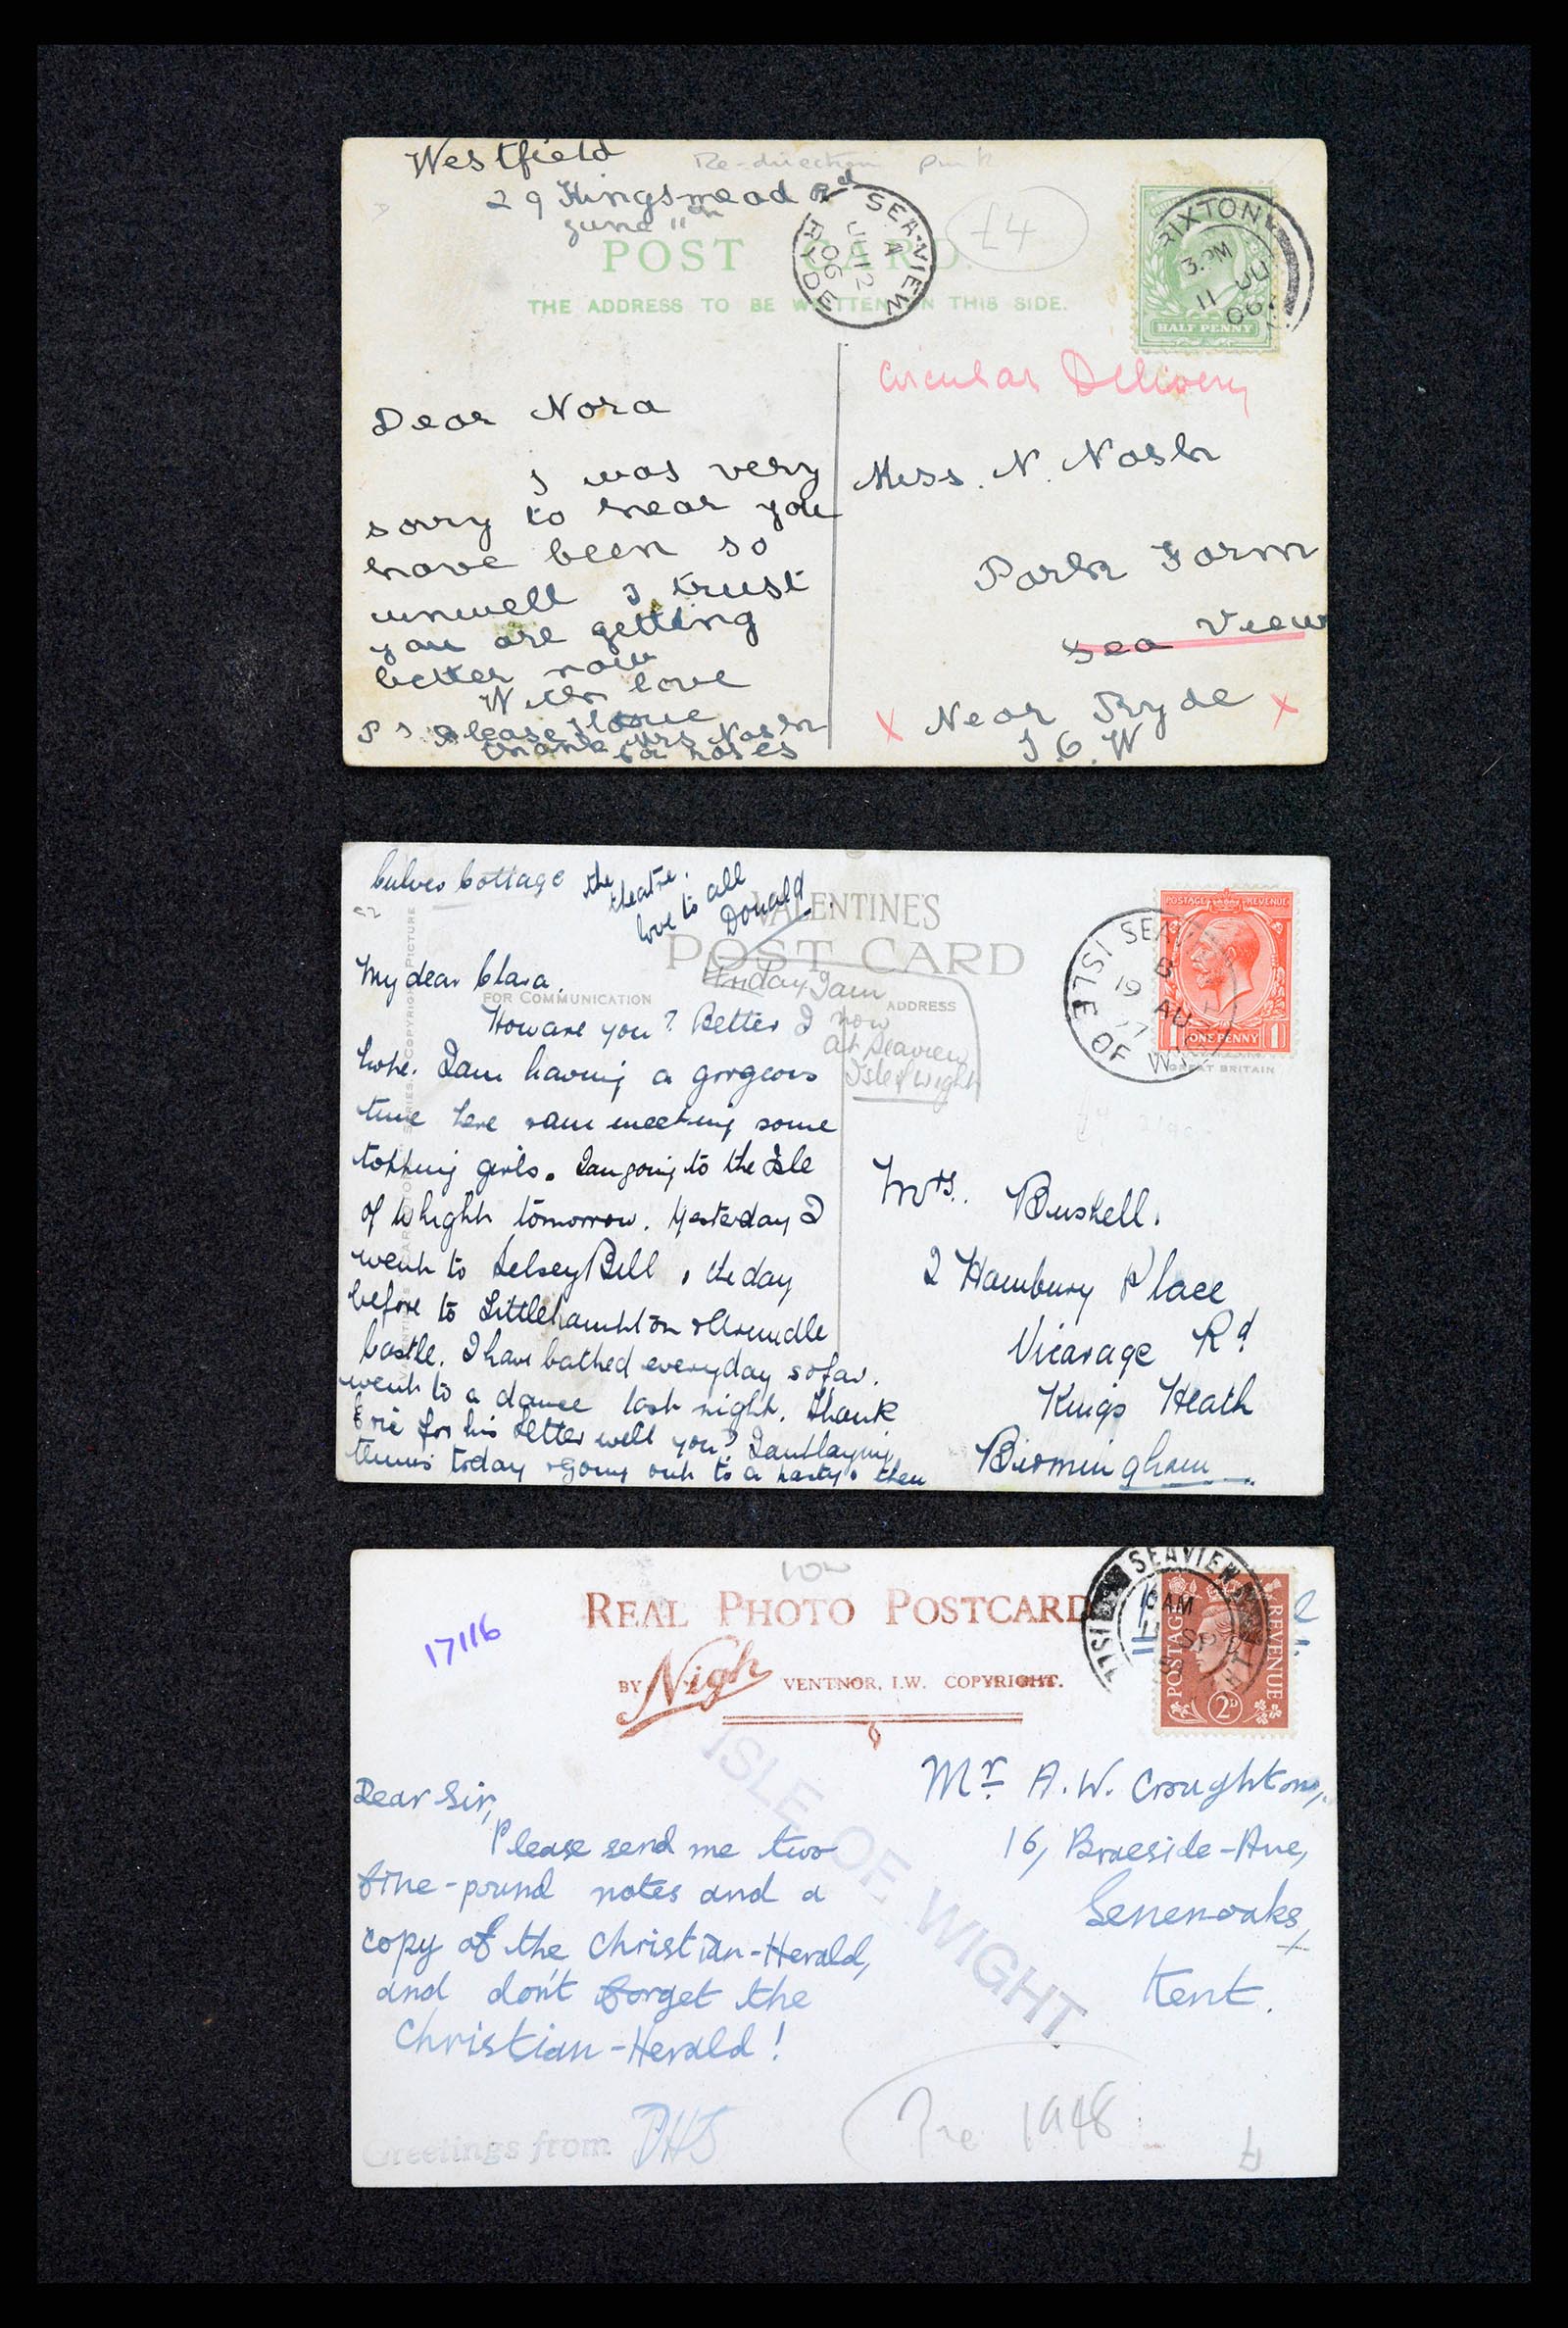 Westfield
29 Kingsmead Rd
June 11th
Re-direction
£4
POST CARD.
THE ADDRESS TO BE WRITTEN ON THIS SIDE.
SEA-VIEW
A
JU 12
06
RYDE
RIXTON
3. PM
11 JU
06
HALF PENNY
Circular Delivery
Dear Nora
I was very
sorry to hear you
have been so
unwell I trust
you are getting
better now
With love
P S Please
thank Mrs Nash
for roses
Miss. N. Nash
Park Farm
Sea View
x Near Ryde x
I.O.W
Culver Cottage
the
theatre.
love to all
Donald.
VALENTINES
POST CARD
FOR COMMUNICATION
ADDRESS
Friday I am
now
at Seaview
Isle of Wight
SEA
B
19 AU
17
ISLE OF W
POSTAGE REVENUE
ONE PENNY
GREAT BRITAIN
My dear Clara.
How are you? Better I
hope. I am having a gorgeous
time here & am meeting some
topping girls. I am going to the Isle
of Whight tomorrow. Yesterday I
went to Selsey Bill, the day
before to Littlehampton & Arundle
Castle. I have bathed everyday so far.
went to a dance last night. Thank
Eric for his letter will you? I am playing
tennis today & going out to a party & then
Mrs. Bushell.
2 Hambury Place
Vicarage Rd
Kings Heath
Birmingham
REAL PHOTO POSTCARD
BY Nigh VENTNOR, I.W. COPYRIGHT.
17116
SEAVIEW
AM
SP
POSTAGE
REVENUE
2D
ISLE OF WIGHT
Dear Sir,
Please send me two
five-pound notes and a
copy of the Christian-Herald,
and don't forget the
Christian-Herald!
PHS
Greetings from
Mr. A. W. Croughton,
16, Braeside-Ave,
Sevenoaks,
Kent.
Pre 1948